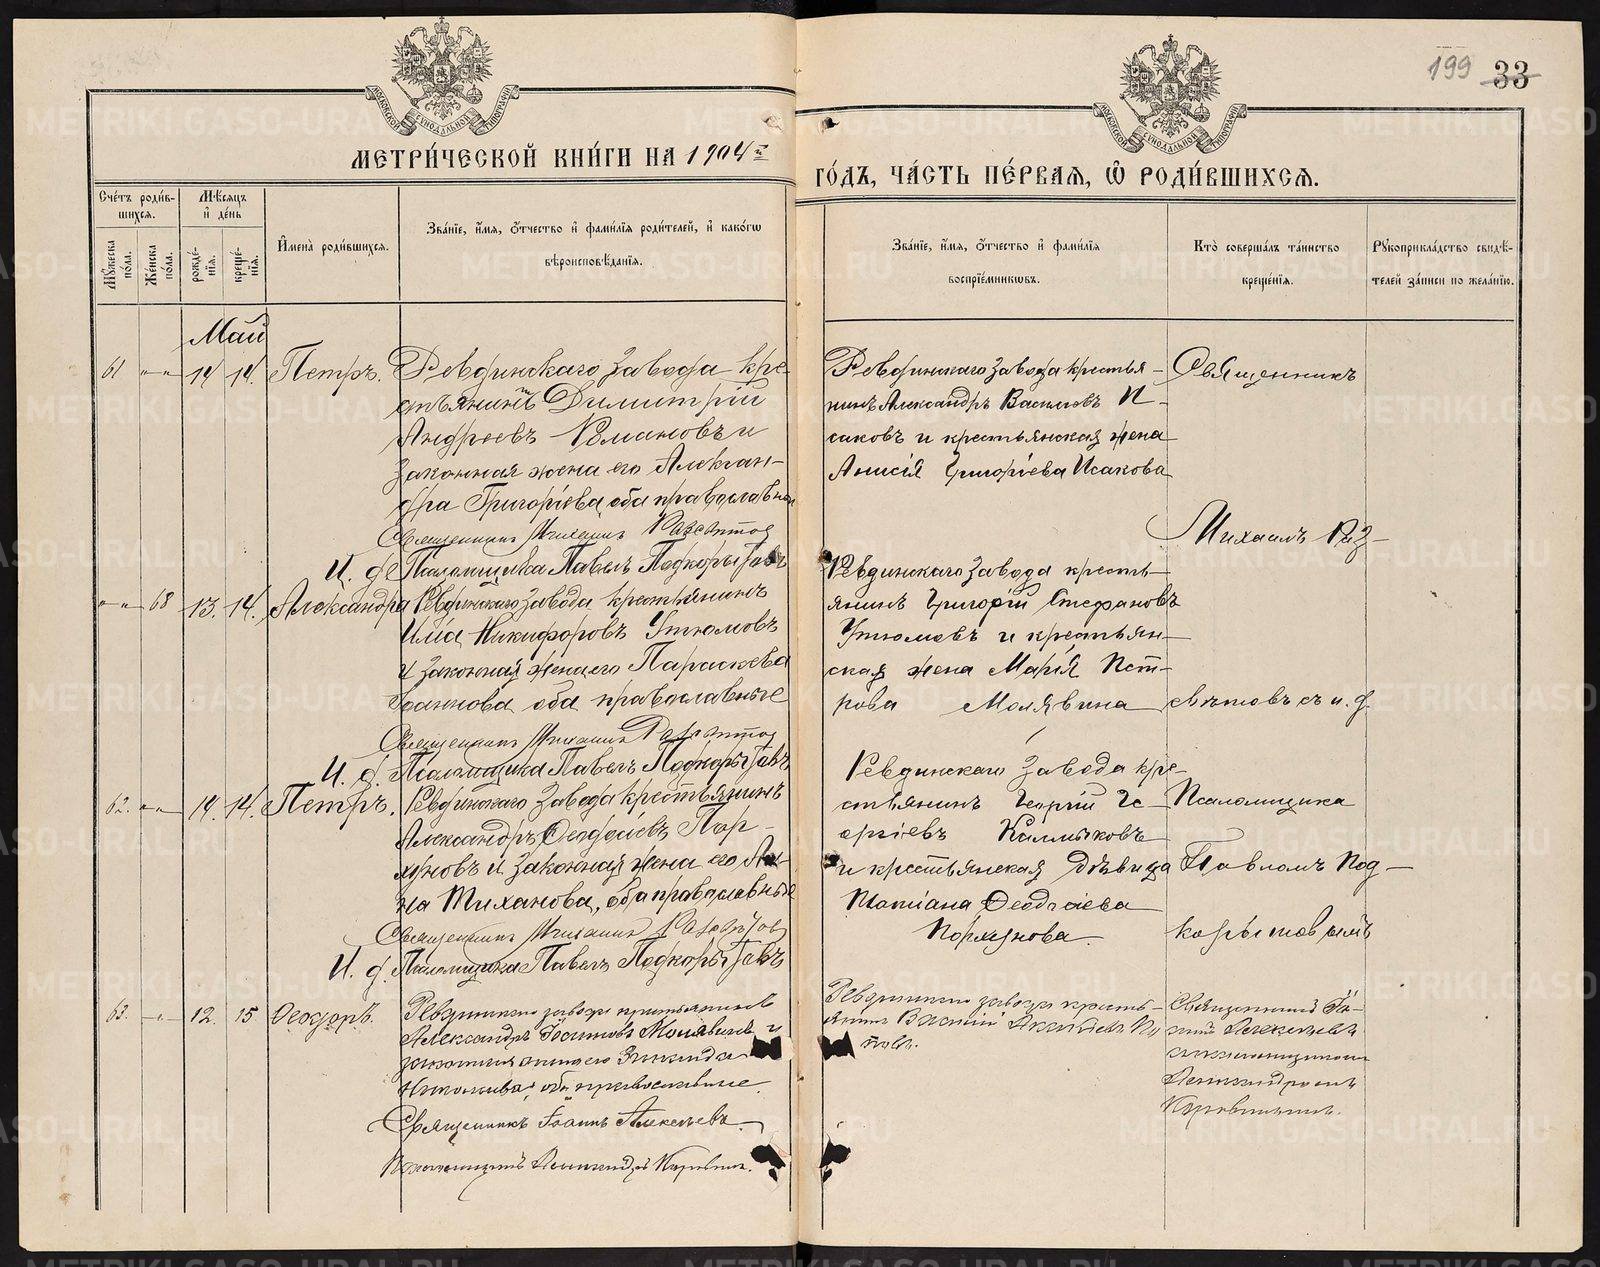 199 33
МЕТРИ́ЧЕСКОЙ КНИ́ГИ НА 1904й
ГО́ДЪ, ЧА́СТЬ ПЕ́РВАѦ, Ѡ РОДИ́ВШИХСѦ.
Сче́тъ роди́в-
шихсѧ.
Мѣсѧцъ
и҆ де́нь
Мꙋ́жеска
по́ла.
Же́нска
по́ла.
рожде́-
нїѧ.
креще́-
нїѧ.
И҆мена̀ роди́вшихсѧ.
Зва́нїе, и҆́мѧ, ѻ҆́тчество и҆ фами́лїѧ роди́телей, и҆ како́гѡ
вѣроисповѣ́данїѧ.
Зва́нїе, и҆́мѧ, ѻ҆́тчество и҆ фами́лїѧ
воспрїе́мникѡвъ.
Кто̀ соверша́лъ та́инство
креще́нїѧ.
Рꙋкоприкла́дство свидѣ́-
телей за́писи по жела́нїю.
Май
61 „ „ 14 14. Петръ. Ревдинскаго завода кре
стьянинъ Димитрій
Андреевъ Романовъ и
законная жена его Алексан-
дра Григоріева, оба православные
Священникъ Михаилъ
И. д. Псаломщика Павелъ Подкорытовъ
Ревдинскаго завода крестья-
нинъ Александръ Васильевъ И-
саковъ и крестьянская жена
Анисія Григоріева Исакова
Священникъ
Михаилъ Раз-
„ „ 68 13. 14. Александра Ревдинскаго завода крестьянинъ
Илія Никифоровъ Утюмовъ
и законная жена его Параскева
Іоаннова, оба православные
Священникъ Михаилъ
И. д. Псаломщика Павелъ Подкорытовъ
Ревдинскаго завода кресть-
янинъ Григорій Стефановъ
Утюмовъ и крестьян-
ская жена Марія Пет-
рова Молявина
ѣтовъ съ и. д.
62. „ „ 14. 14. Петръ. Ревдинскаго завода крестьянинъ
Александръ Ѳеодосіевъ Пор-
муновъ и законная жена его Ан-
на Тиханова, оба православные
Священникъ Михаилъ
И. д. Псаломщика Павелъ Подкорытовъ
Ревдинскаго завода кре-
стьянинъ Георгій Ге-
оргіевъ Калмыковъ
и крестьянская дѣвица
Татіана Ѳеодосіева
Пормунова.
Псаломщика
Павломъ Под-
корытовымъ
63. „ 12. 15 Ѳеодоръ. Ревдинскаго завода крестьянинъ
Александръ Молявинъ и
законная жена его Зинаида
Николаева, оба православные.
Священникъ Іоаннъ Алексѣевъ.
Псаломщикъ Александръ
Ревдинскаго завода кресть-
янинъ Василій По
повъ.
Священникъ Іо-
аннъ Алексѣевъ
съ псаломщикомъ
Александромъ